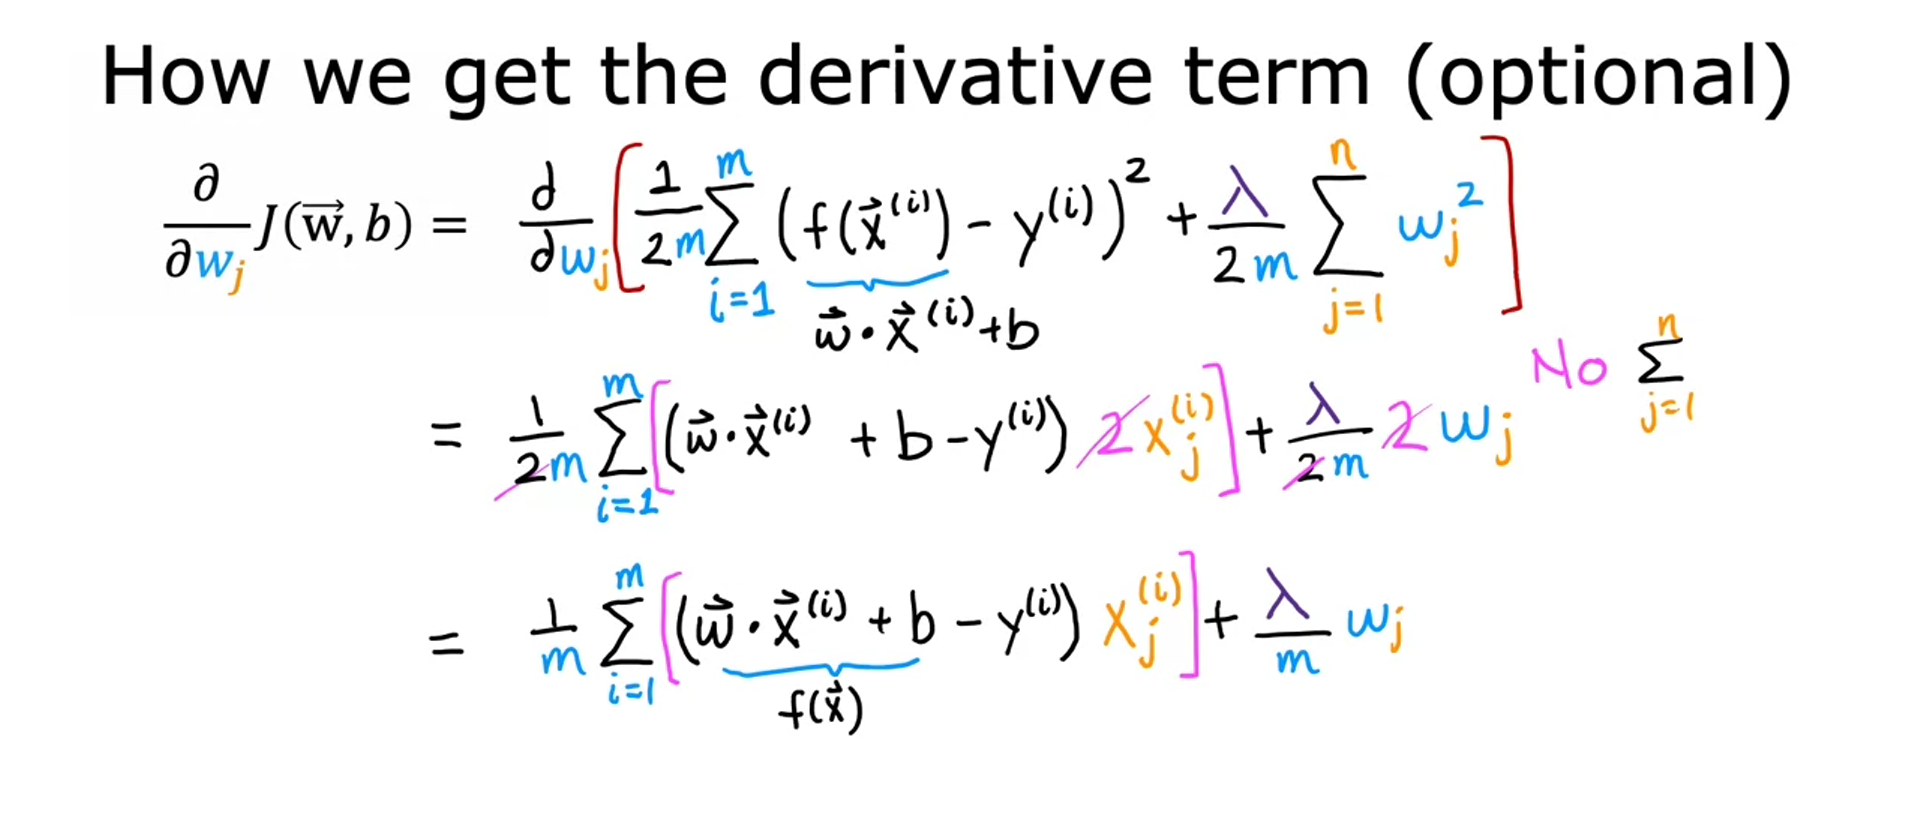 How we get the derivative term (optional)
∂/∂wⱼ J(w⃗, b) = d/dwⱼ [ 1/2m ∑ᵢ₌₁ᵐ (f(x⃗⁽ⁱ⁾) - y⁽ⁱ⁾)² + λ/2m ∑ⱼ₌₁ⁿ wⱼ² ]
w⃗ · x⃗⁽ⁱ⁾ + b
No ∑ⱼ₌₁ⁿ
= 1/2m ∑ᵢ₌₁ᵐ [ (w⃗ · x⃗⁽ⁱ⁾ + b - y⁽ⁱ⁾) 2 xⱼ⁽ⁱ⁾ ] + λ/2m 2 wⱼ
= 1/m ∑ᵢ₌₁ᵐ [ (w⃗ · x⃗⁽ⁱ⁾ + b - y⁽ⁱ⁾) xⱼ⁽ⁱ⁾ ] + λ/m wⱼ
f(x⃗)